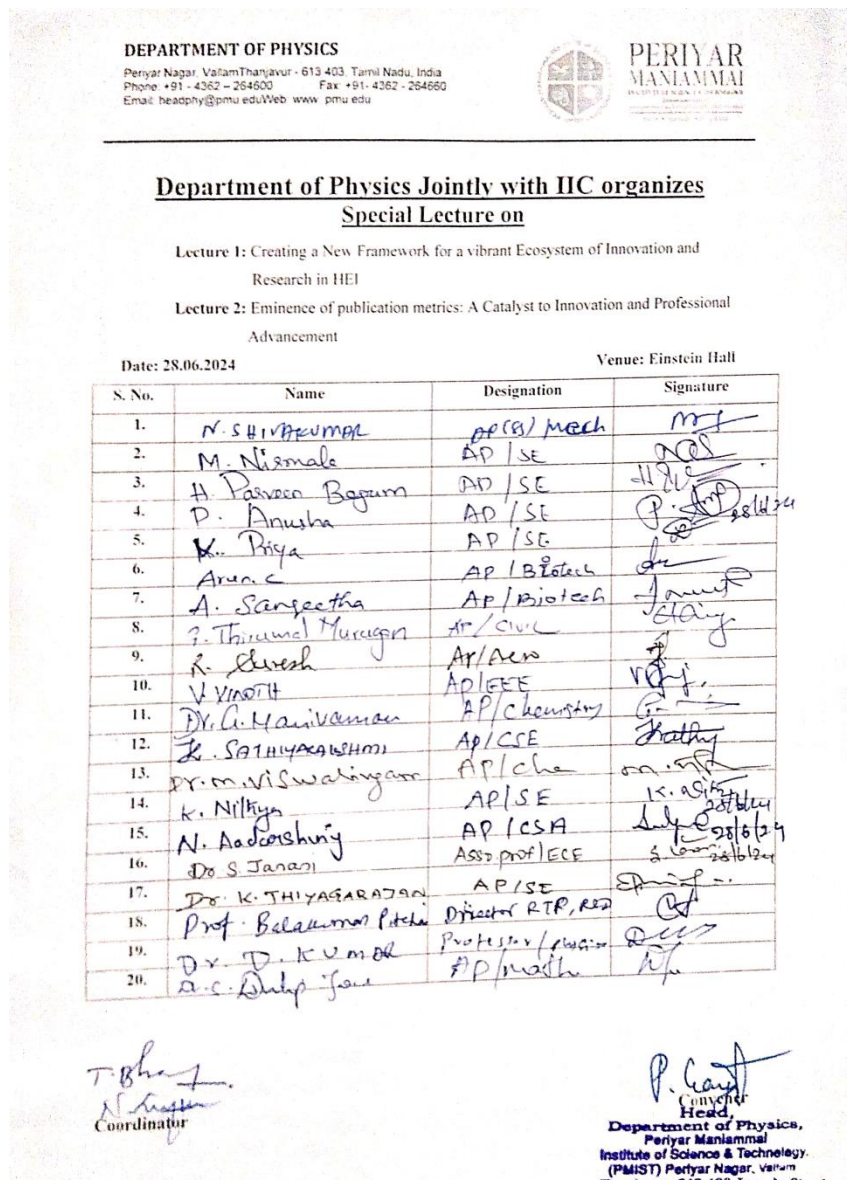 DEPARTMENT OF PHYSICS
Periyar Nagar, VallamThanjavur - 613 403, Tamil Nadu, India
Phone: +91 - 4362 – 264600 Fax: +91- 4362 - 264660
Email: headphy@pmu.eduWeb: www. pmu.edu
PERIYAR
MANIAMMAI
Department of Physics Jointly with IIC organizes
Special Lecture on
Lecture 1: Creating a New Framework for a vibrant Ecosystem of Innovation and
Research in HEI
Lecture 2: Eminence of publication metrics: A Catalyst to Innovation and Professional
Advancement
Date: 28.06.2024 Venue: Einstein Hall
S. No. Name Designation Signature
1. N. SHIVAKUMAR AP(SS) Mech
2. M. Nirmala AP / SE
3. H. Parveen Begum AP / SE
4. P. Anusha AP / SE 28/6/24
5. K. Priya AP / SE
6. Arun. C AP / Biotech
7. A. Sangeetha AP / Biotech
8. Thirumal Murugan AP / Civil
9. R. Suresh AP/Aero
10. V. VINOTH AP/EEE
11. Dr. G. Manivannan AP/Chemistry
12. K. SATHIYALAKSHMI AP/CSE
13. Dr. M. Viswalingam AP/Che
14. K. Nithya AP/SE 28/6/24
15. N. Aadarshiny AP / CSA 28/6/24
16. Dr S. Janani Asso.prof/ECE 28/6/24
17. Dr. K. THIYAGARAJAN AP/SE
18. Prof. Balakumar Pitchai Director RTP, R&D
19. Dr. D. KUMAR Professor / physics
20. AP/math
Coordinator
Convener
Head,
Department of Physics,
Periyar Maniammai
Institute of Science & Technology.
(PMIST) Periyar Nagar, Vallam